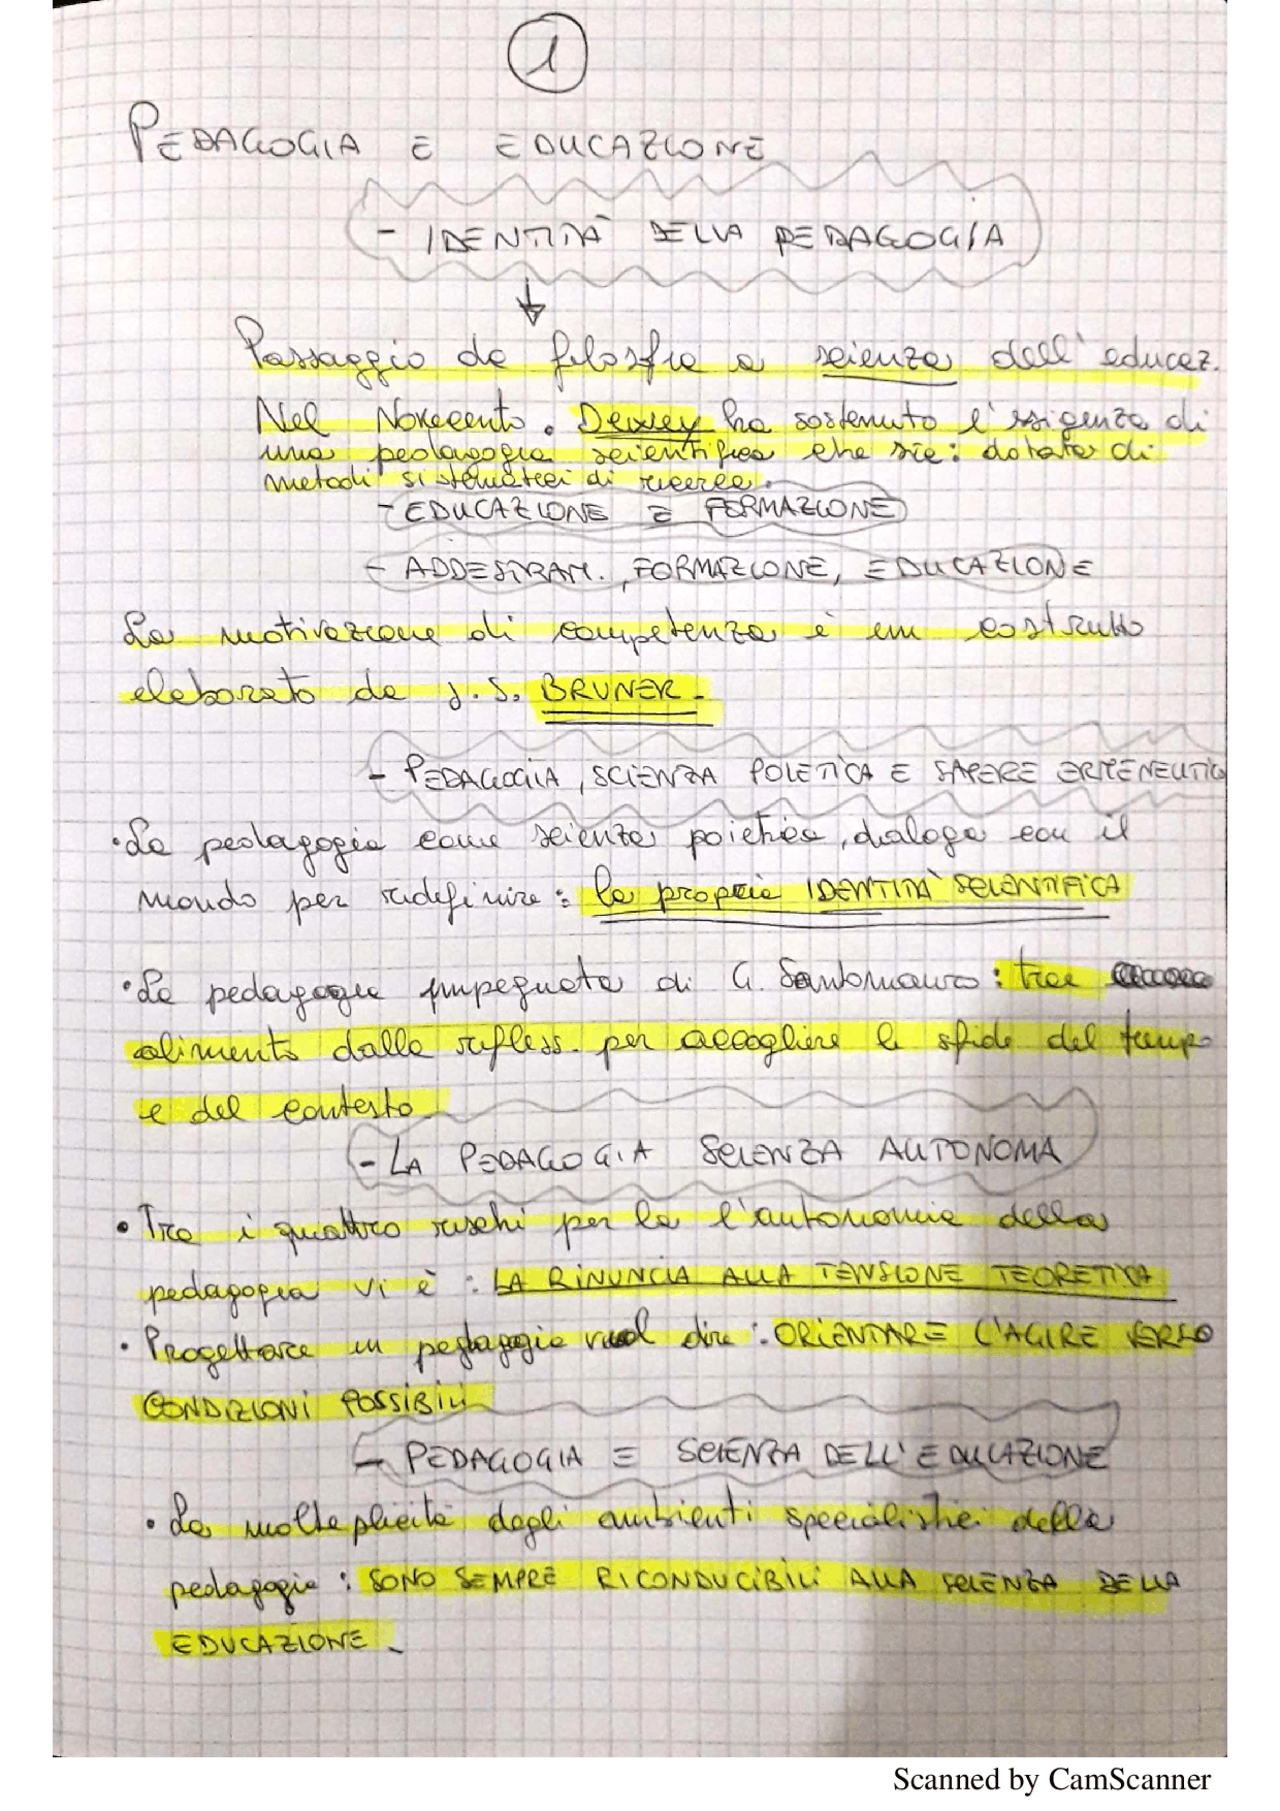 1
PEDAGOGIA E EDUCAZIONE
- IDENTITÀ DELLA PEDAGOGIA
Passaggio da filosfia a scienza dell'educaz.
Nel Novecento. Dewey ha sostenuto l'esigenza di
una pedagogia scientifica che sia: dotata di
metodi sistematici di ricerca.
- EDUCAZIONE E FORMAZIONE
- ADDESTRAM., FORMAZIONE, EDUCAZIONE
La motivazione di competenza è un costrutto
elaborato da J. S. BRUNER.
- PEDAGOGIA, SCIENZA POIETICA E SAPERE ERMENEUTICO
• La pedagogia come scienza poietica, dialoga con il
mondo per ridefinire: la propria IDENTITÀ SCIENTIFICA
• La pedagogia impegnata di G. Santomauro: trae
alimento dalla rifless. per accogliere le sfide del tempo
e del contesto
- LA PEDAGOGIA SCIENZA AUTONOMA
• Tra i quattro rischi per la l'autonomia della
pedagogia vi è: LA RINUNCIA ALLA TENSIONE TEORETICA
• Progettare in pedagogia vuol dire: ORIENTARE L'AGIRE VERSO
CONDIZIONI POSSIBILI
- PEDAGOGIA E SCIENZA DELL'EDUCAZIONE
• La molteplicità degli ambienti specialistici della
pedagogia: SONO SEMPRE RICONDUCIBILI ALLA SCIENZA DELLA
EDUCAZIONE.
Scanned by CamScanner